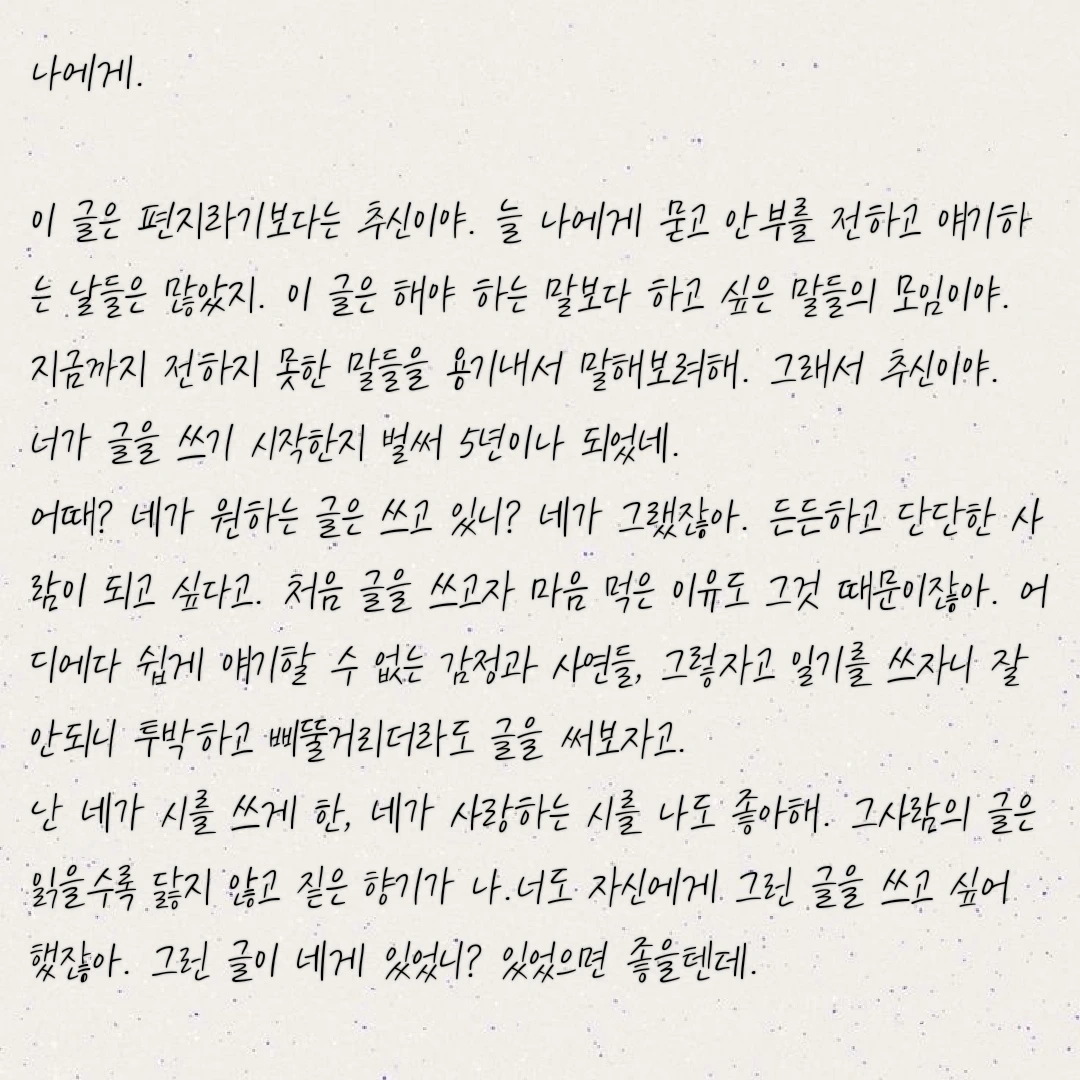 나에게.
이 글은 편지라기보다는 추신이야. 늘 나에게 묻고 안부를 전하고 얘기하
는 날들은 많았지. 이 글은 해야 하는 말보다 하고 싶은 말들의 모임이야.
지금까지 전하지 못한 말들을 용기내서 말해보려해. 그래서 추신이야.
너가 글을 쓰기 시작한지 벌써 5년이나 되었네.
어때? 네가 원하는 글은 쓰고 있니? 네가 그랬잖아. 든든하고 단단한 사
람이 되고 싶다고. 처음 글을 쓰고자 마음 먹은 이유도 그것 때문이잖아. 어
디에다 쉽게 얘기할 수 없는 감정과 사연들, 그렇자고 일기를 쓰자니 잘
안되니 투박하고 삐뚤거리더라도 글을 써보자고.
난 네가 시를 쓰게 한, 네가 사랑하는 시를 나도 좋아해. 그사람의 글은
읽을수록 닳지 않고 짙은 향기가 나.너도 자신에게 그런 글을 쓰고 싶어
했잖아. 그런 글이 네게 있었니? 있었으면 좋을텐데.